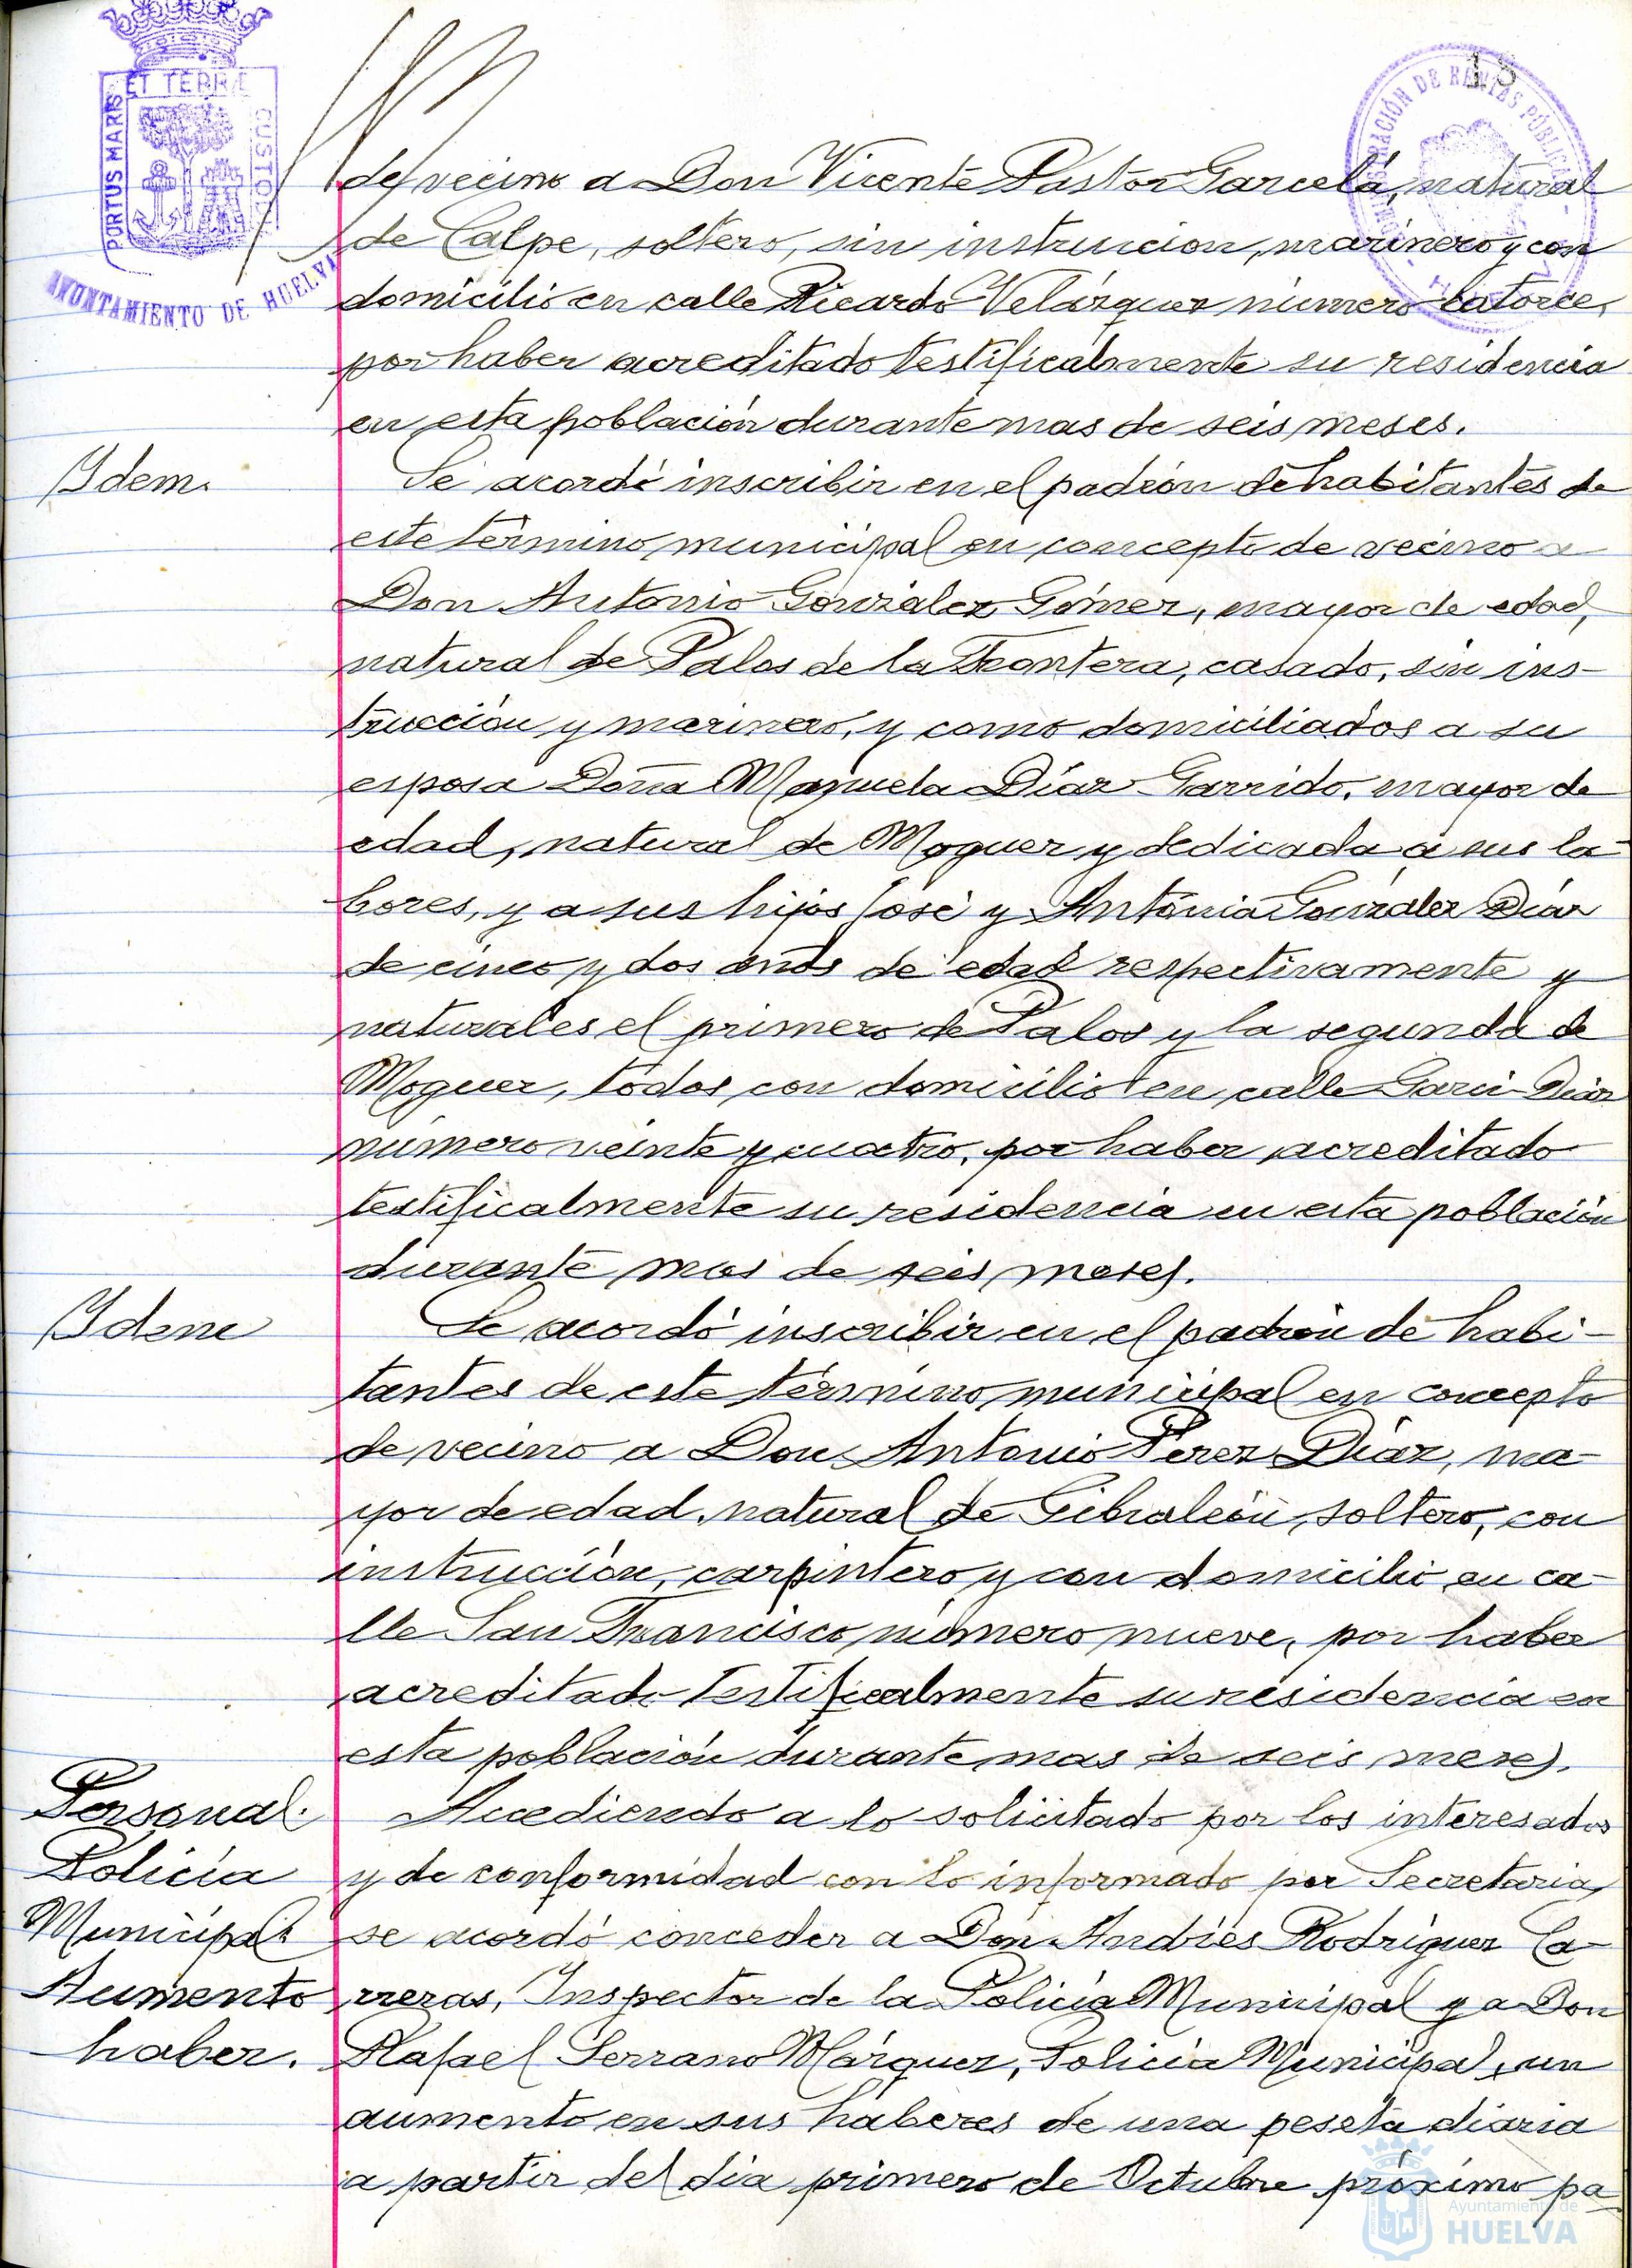 15
ET TERRÆ
PORTUS MARIS
CUSTODIA
AYUNTAMIENTO DE HUELVA
ADMINISTRACIÓN DE RENTAS PÚBLICAS
de vecino a Don Vicente Pastor Garcelá, natural
de Calpe, soltero, sin instrucion, marinero y con
domicilio en calle Ricardo Velázquez número catorce,
por haber acreditado testificalmente su residencia
en esta población durante mas de seis meses.
Idem.
Se acordó inscribir en el padrón de habitantes de
este término municipal en concepto de vecino a
Don Antonio González Gómez, mayor de edad,
natural de Palos de la Frontera, casado, sin ins-
trucción y marinero, y como domiciliados a su
esposa Doña Manuela Díaz Garrido, mayor de
edad, natural de Moguer y dedicada a sus la-
bores, y a sus hijos José y Antonia González Díaz
de cinco y dos años de edad respectivamente y
naturales el primero de Palos y la segunda de
Moguer, todos con domicilio en calle Garci-Díaz
número veinte y cuatro, por haber acreditado
testificalmente su residencia en esta población
durante mas de seis meses.
Idem
Se acordó inscribir en el padrón de habi-
tantes de este término municipal en concepto
de vecino a Don Antonio Pérez Díaz, ma-
yor de edad, natural de Gibraleón, soltero, con
instrucción, carpintero y con domicilio en ca-
lle San Francisco número nueve, por haber
acreditado testificalmente su residencia en
esta población durante mas de seis meses.
Personal.
Policía
Municipal
Aumento
haber.
Accediendo a lo solicitado por los interesados
y de conformidad con lo informado por Secretaria,
se acordó conceder a Don Andrés Rodríguez Ca-
rreras, Inspector de la Policía Municipal y a Don
Rafael Serrano Márquez, Policía Municipal, un
aumento en sus haberes de una peseta diaria
a partir del día primero de Octubre próximo pa-
Ayuntamiento de
HUELVA